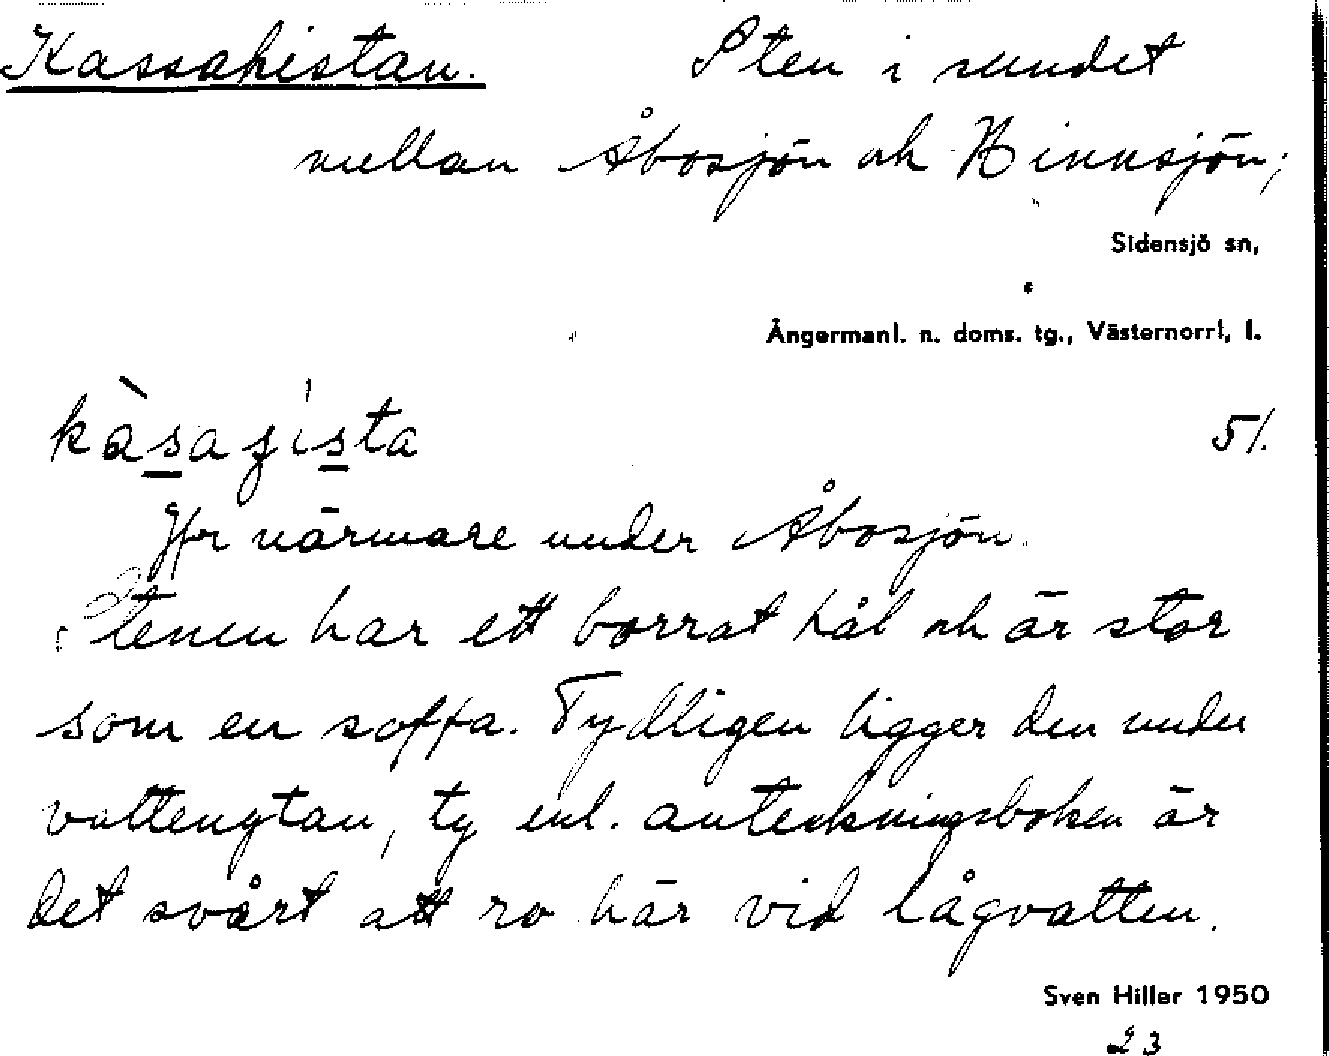 Kassakistan. Sten i sundet
mellan Åbosjön och Hinnsjön;
Sidensjö sn,
Ångermanl. n. doms. tg., Västernorrl. l.
51.
Jfr närmare under Åbosjön.
Stenen har ett borrat hål och är stor
som en soffa. Tydligen ligger den under
vattenytan, ty enl. anteckningsboken är
det svårt att ro här vid lågvatten.
Sven Hiller 1950
23